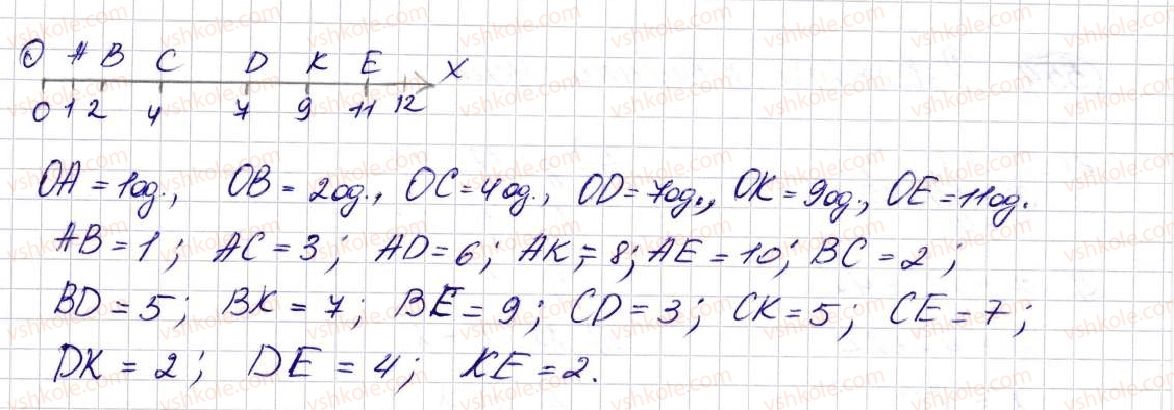 O A B C D K E X
0 1 2 4 7 9 11 12
OA = 1од., OB = 2од., OC = 4од., OD = 7од., OK = 9од., OE = 11од.
AB = 1; AC = 3; AD = 6; AK = 8; AE = 10; BC = 2;
BD = 5; BK = 7; BE = 9; CD = 3; CK = 5; CE = 7;
DK = 2; DE = 4; KE = 2.
vshkole.com